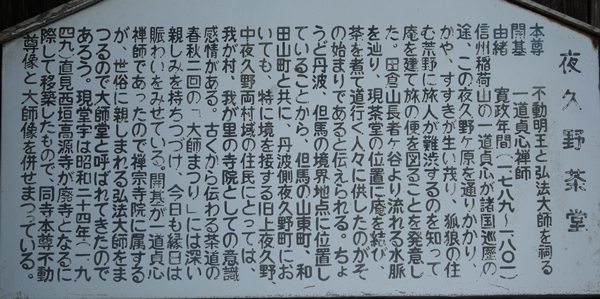 夜久野茶堂
本尊　不動明王と弘法大師を祠る
開基　一道貞心禅師
由緒　寛政年間（一七八九〜一八〇一）
信州稲荷山の一道貞心が諸国巡歴の
途、この夜久野ヶ原を通りかかり、
かや、すすきが生い茂り、狐狼の住
む荒野に旅人が難渋するのを知って
庵を建て旅の便を図ることを発意し
た。田倉山長者ヶ谷より流れる水脈
を辿り、現茶堂の位置に庵を結び
茶を煮て道行く人々に供したのがそ
の始まりであると伝えられる。ちょ
うど丹波、但馬の境界地点に位置し
ていることから、但馬の山東町、和
田山町と共に、丹波側夜久野町にお
いても、特に境を接する旧上夜久野、
中夜久野両村域の住民にとっては、
我が村、我が里の寺院としての意識
感情がある。古くから伝わる茶道の
春秋二回の「大師まつり」には深い
親しみを持ちつづけ、今日も縁日は
賑わいをみせている。開基が一道貞心
禅師であったので禅宗寺院に属する
が、世俗に親しまれる弘法大師をま
つるので大師堂と呼ばれてきたので
あろう。現堂宇は昭和二十四年（一九
四九）直見西垣高源寺が廃寺となるに
際して移築したもので、同寺本尊不動
尊像と大師像を併せまつっている。